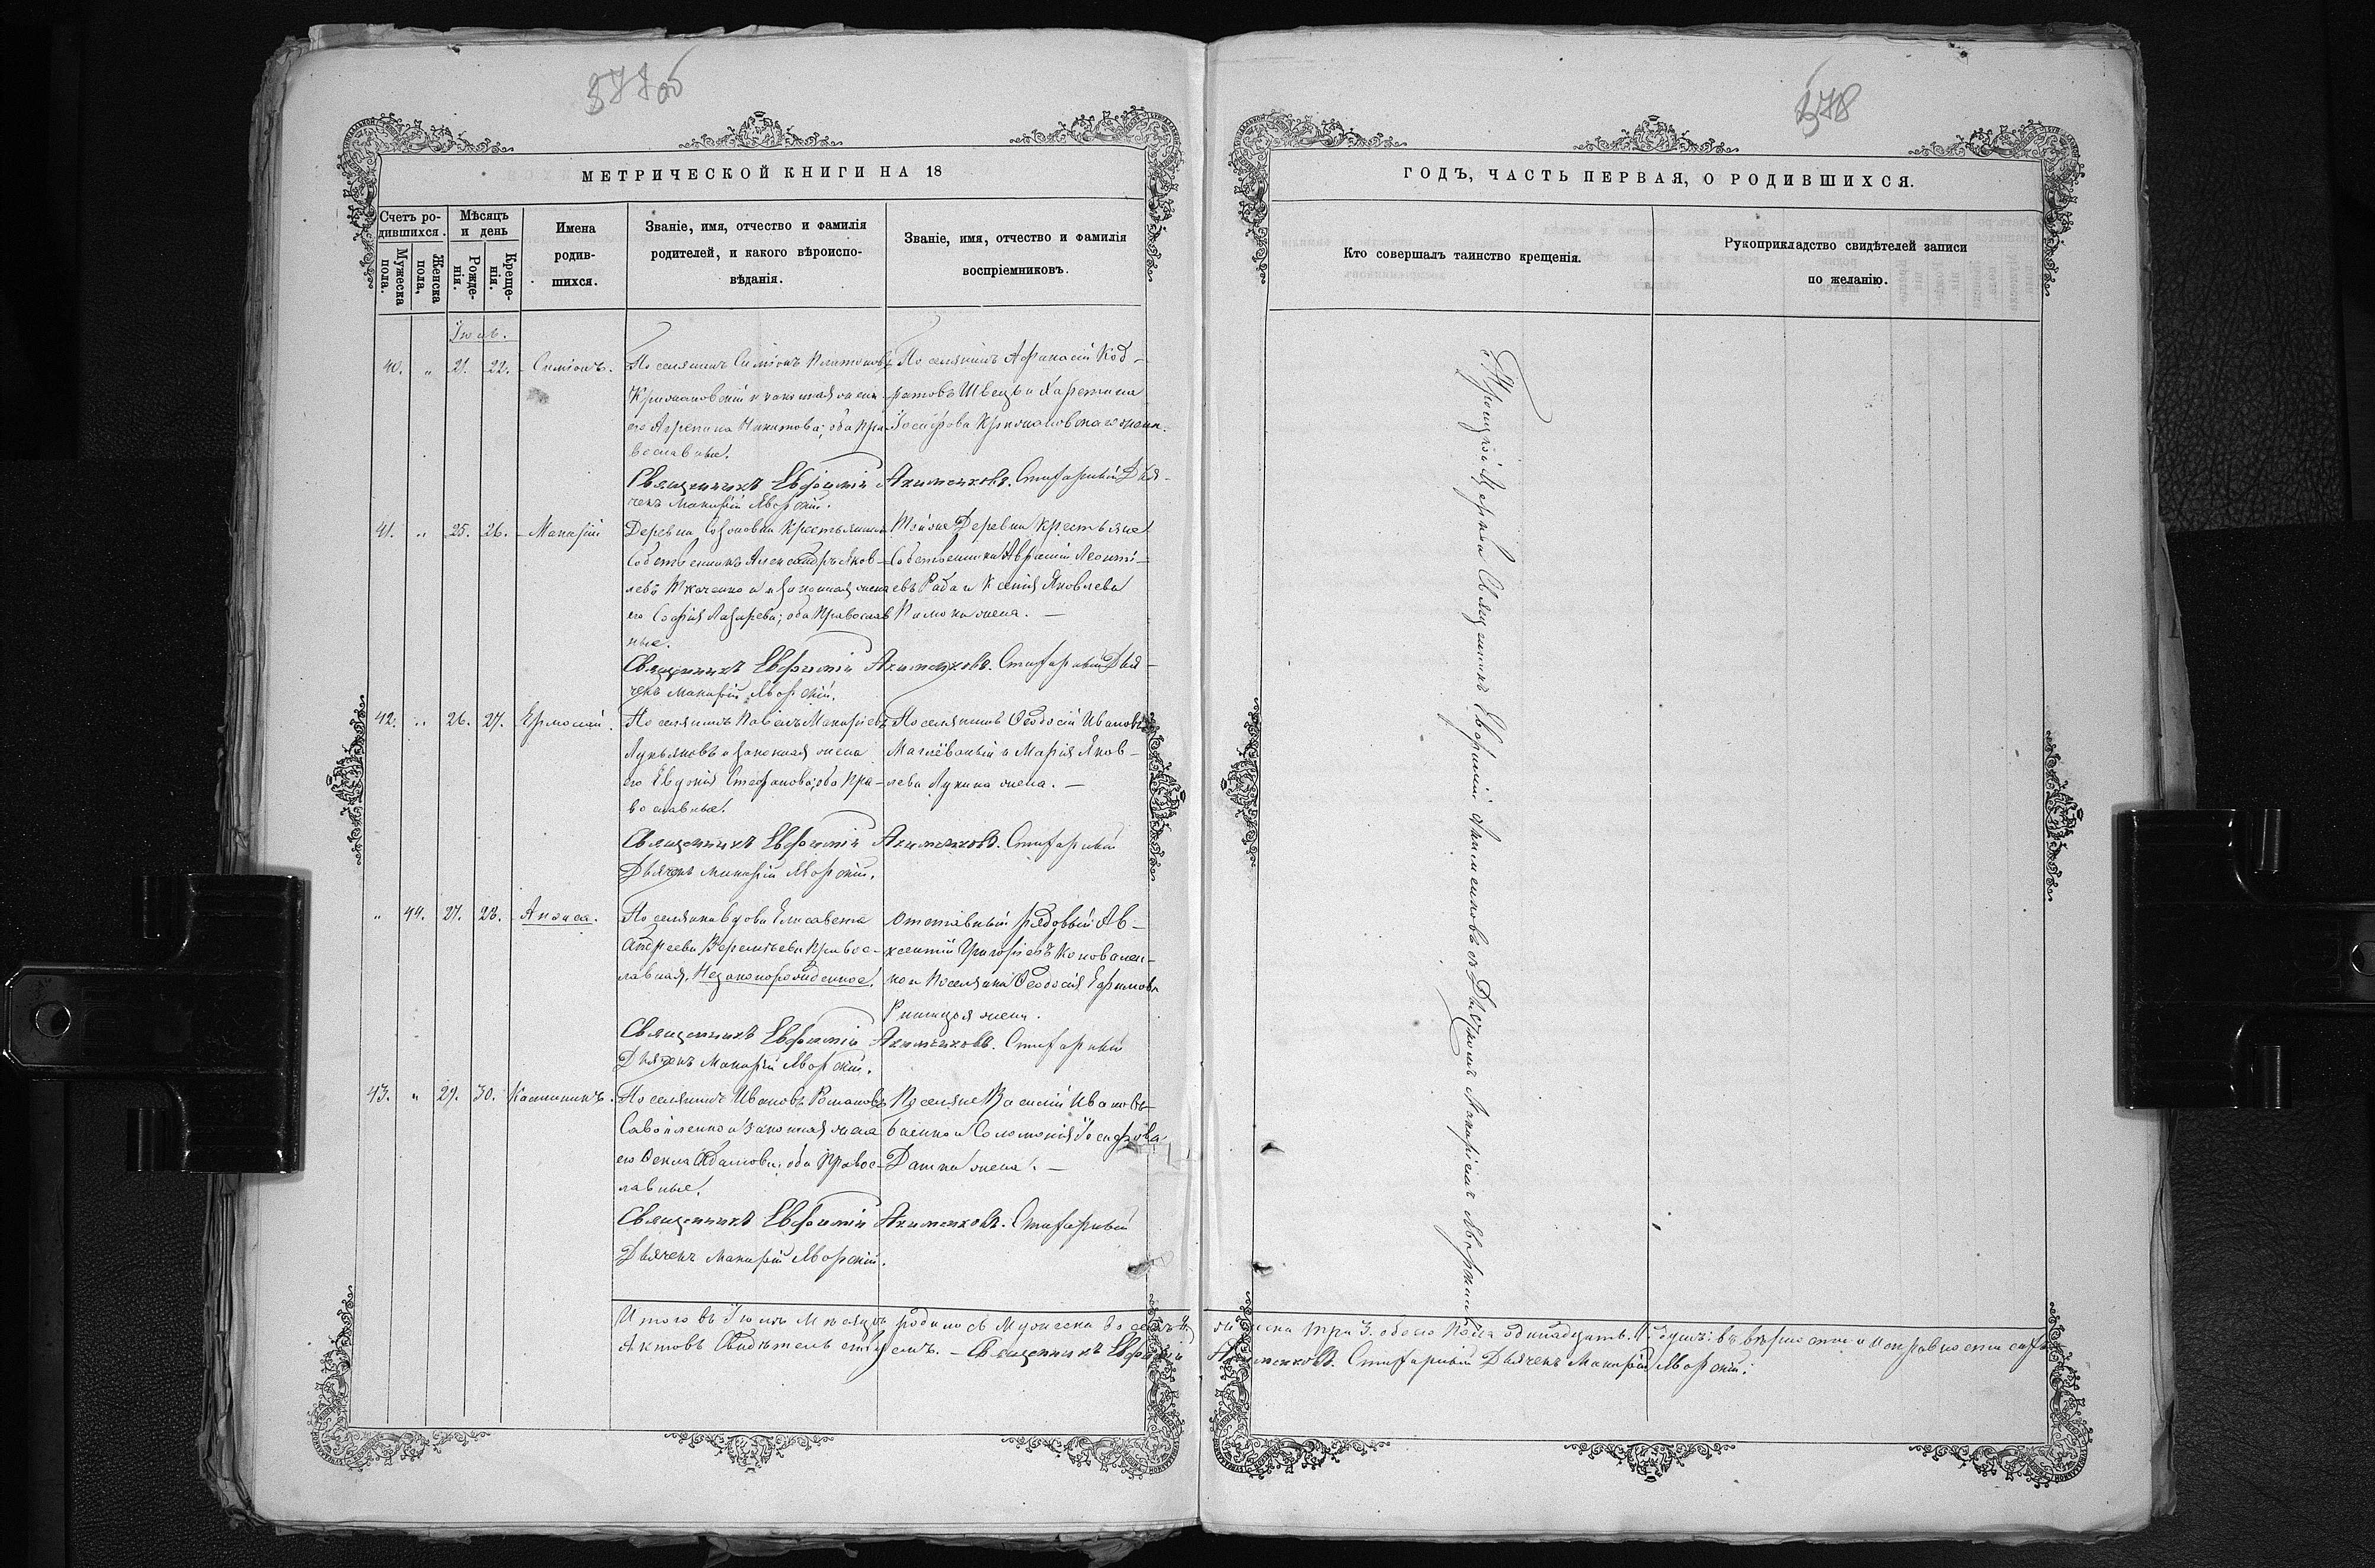 577об
МЕТРИЧЕСКОЙ КНИГИ НА 18
Счетъ ро-
дившихся.
Мужеска
пола.
Женска
пола,
Мѣсяцъ
и день
Рожде-
нія.
Креще-
нія.
Имена
родив-
шихся.
Званіе, имя, отчество и фамилія
родителей, и какого вѣроиспо-
вѣданія.
Званіе, имя, отчество и фамилія
воспріемниковъ.
Іюль.
40. „ 21. 22. Симіонъ.
Поселянинъ Симіонъ Платоновъ
и законная жена
его Агрепина Никитова; оба пра-
вославные.
Поселянинъ Афанасій Код-
ратовъ Швецъ и Харетина
Іосифова жена.
Священникъ Евфимій Акименковъ. Стихарный Дья-
чекъ Макарій Яворскій.
41. „ 25. 26. Макарій
Деревни Крестьянинъ
Собственникъ Александръ Яков-
левъ Ткаченко и законная жена
его Софія Лазарева; оба Православ
ные.
Тойже Деревни Крестьяне
Собственники Аврамій Леонті-
евъ Рада и Ксенія Яковлева
жена. —
Священникъ Евфимій Акименковъ. Стихарный Дья-
чекъ Макарій Яворскій.
42. „ 26. 27. Ермолай.
Поселянинъ Павелъ Макаріевъ
Лукьяновъ и законная жена
его Евдокія Стефанова; оба Пра-
вославные.
Поселянинъ Ѳеодосій Ивановъ
и Марія Яков-
лева Лукина жена. —
Священникъ Евфимій Акименковъ. Стихарный
Дьячекъ Макарій Яворскій.
„ 44. 27. 28. Анѳиса.
Поселянка вдова Елисавета
Андреева Терентьева Правос-
лавная, Незаконорожденное.
Отставный рядовый Ав-
ксентій Григоріевъ Коновален-
ко и Поселянка Ѳеодосія Ефимова
жена.
Священникъ Евфимій Акименковъ. Стихарный
Дьячекъ Макарій Яворскій.
43. „ 29. 30. Калиникъ.
Поселянинъ Ивановъ Романовъ
Савойленко и законная жена
его Ѳекла Адамова; оба Правос-
лавные.
Поселяне Василій Ивановъ
и Соломонія Іосифова
Дашка жена. —
Священникъ Евфимій Акименковъ. Стихарный
Дьячекъ Макарій Яворскій.
Итого въ Іюлѣ Мѣсяцѣ родилось Мужеска восемь 8,
Актовъ Свидѣтельствуемъ. — Священникъ Евфимій
578
ГОДЪ, ЧАСТЬ ПЕРВАЯ, О РОДИВШИХСЯ.
Кто совершалъ таинство крещенія.
Рукоприкладство свидѣтелей записи
по желанію.
Троицкой Церкви Священникъ Евфимій Акименковъ съ Дьячкомъ Макаріемъ Яворскимъ
женска три 3. обоего пола одинадцать. 11 душъ: въ вѣрности и исправности сихъ
Акименковъ. Стихарный Дьячекъ Макарій Яворскій.